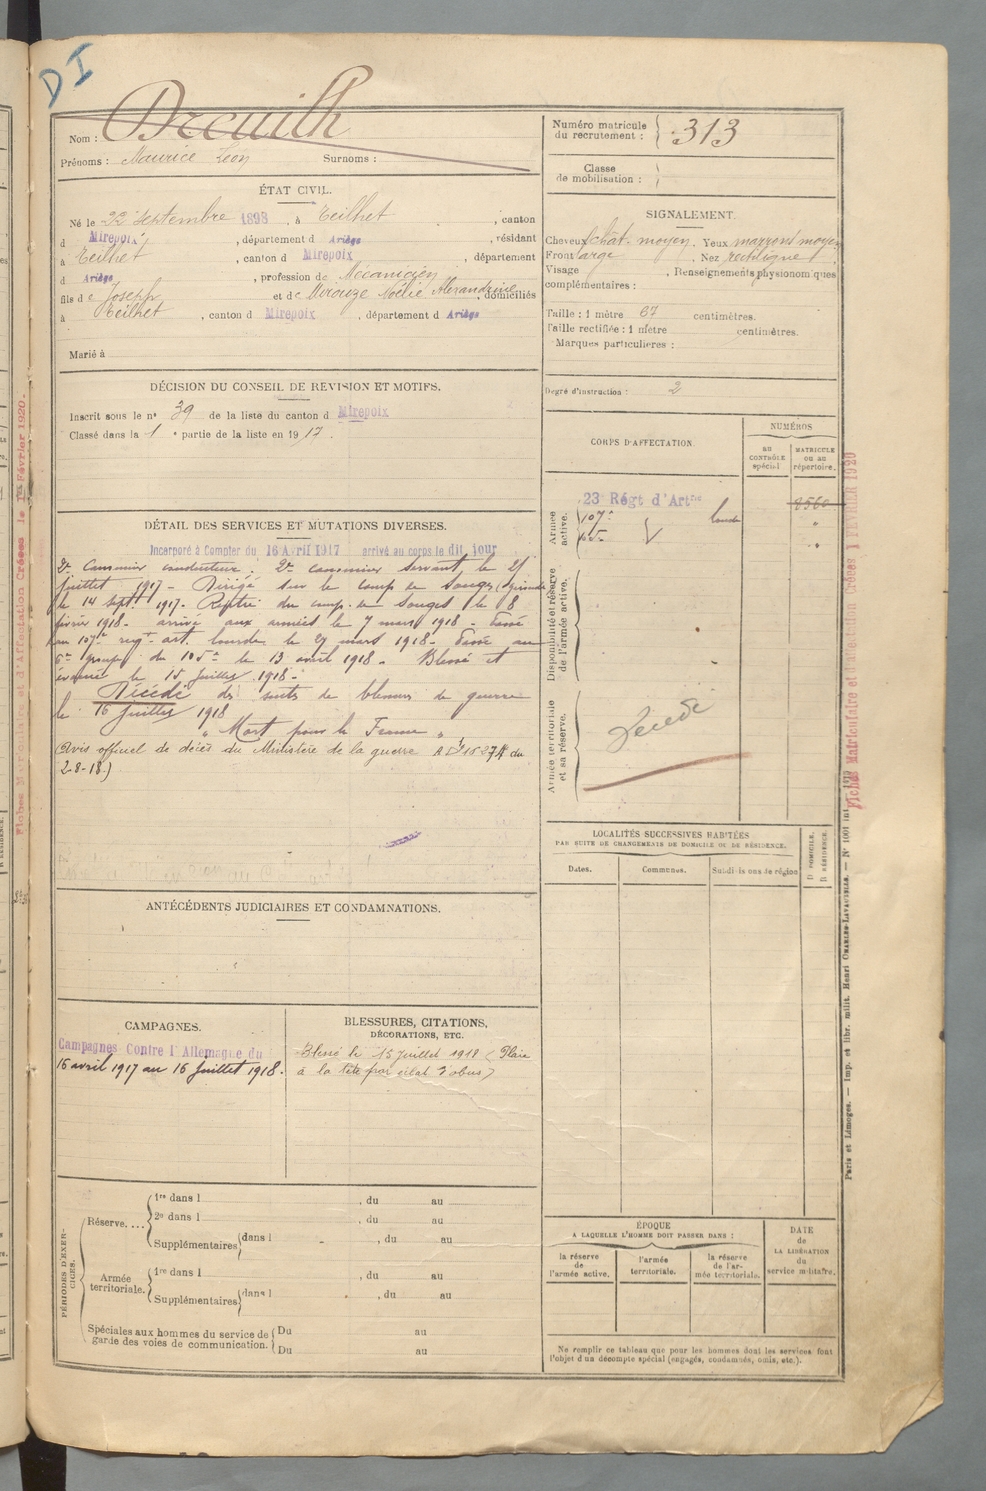 DI
Nom : Dreuilh
Prénoms : Maurice Léon Surnoms :
Numéro matricule du recrutement : 313
Classe de mobilisation :
ÉTAT CIVIL.
Né le 22 septembre 1898, à Teilhet, canton
d Mirepoix, département d Ariège, résidant
à Teilhet, canton d Mirepoix, département
d Ariège, profession de Mécanicien
fils de Joseph et de Mirouze Noélie Alexandrine, domiciliés
à Teilhet, canton d Mirepoix, département d Ariège
Marié à
DÉCISION DU CONSEIL DE REVISION ET MOTIFS.
Inscrit sous le n° 39 de la liste du canton d Mirepoix
Classé dans la 1 e partie de la liste en 1917.
DÉTAIL DES SERVICES ET MUTATIONS DIVERSES.
Incorporé à Compter du 16 Avril 1917 arrivé au corps le dit jour
2e Canonnier conducteur. 2e canonnier servant, le 21
juillet 1917 - Dirigé sur le camp de Souges (Gironde
le 14 sept. 1917 - Rentré du camp de Souges le 8
février 1918 - arrivé aux armées le 7 mars 1918 - Passé
au 107e regt art. lourde le 27 mars 1918 - Passé au
6e groupe du 105e le 13 avril 1918 - Blessé et
évacué le 15 juillet 1918 -
Décédé des suites de blessures de guerre
le 16 juillet 1918
"Mort pour la France"
(Avis officiel de décès du Ministère de la guerre du
2-8-18)
ANTÉCÉDENTS JUDICIAIRES ET CONDAMNATIONS.
CAMPAGNES.
Campagnes Contre l'Allemagne du
16 avril 1917 au 16 juillet 1918.
BLESSURES, CITATIONS,
DÉCORATIONS, ETC.
Blessé le 15 juillet 1918 (Plaie
à la tête par éclat d'obus)
PÉRIODES D'EXERCICES.
Réserve....
1re dans l , du au
2e dans l , du au
Supplémentaires dans l , du au
Armée territoriale.
1re dans l , du au
Supplémentaires dans l , du au
Spéciales aux hommes du service de garde des voies de communication.
Du au
Du au
SIGNALEMENT.
Cheveux chat. moyen. Yeux marrons moyen
Front large. Nez rectiligne
Visage , Renseignements physionomiques
complémentaires :
Taille : 1 mètre 67 centimètres.
Taille rectifiée : 1 mètre centimètres.
Marques particulières :
Degré d'instruction : 2
CORPS D'AFFECTATION.
NUMÉROS
AU CONTRÔLE spécial
MATRICULE OU AU répertoire.
Armée active.
23e Régt d'Artrie
107e lourde
105e
Disponibilité et réserve de l'armée active.
Armée territoriale et sa réserve.
Décédé
LOCALITÉS SUCCESSIVES HABITÉES
PAR SUITE DE CHANGEMENTS DE DOMICILE OU DE RÉSIDENCE.
Dates. Communes. Subdivisions de région
D DOMICILE.
R RÉSIDENCE.
ÉPOQUE
A LAQUELLE L'HOMME DOIT PASSER DANS :
la réserve de l'armée active.
l'armée territoriale.
la réserve de l'armée territoriale.
DATE de LA LIBÉRATION du service militaire.
Ne remplir ce tableau que pour les hommes dont les services font
l'objet d'un décompte spécial (engagés, condamnés, omis, etc.).
Paris et Limoges. — Imp. et libr. milit. Henri CHARLES-LAVAUZELLE. — N° 1001
Fiches Matriculaire et d'affectation Créées, 1 FÉVRIER 1920
Fiches Matriculaire et d'Affectation Créées le 1er Février 1920.